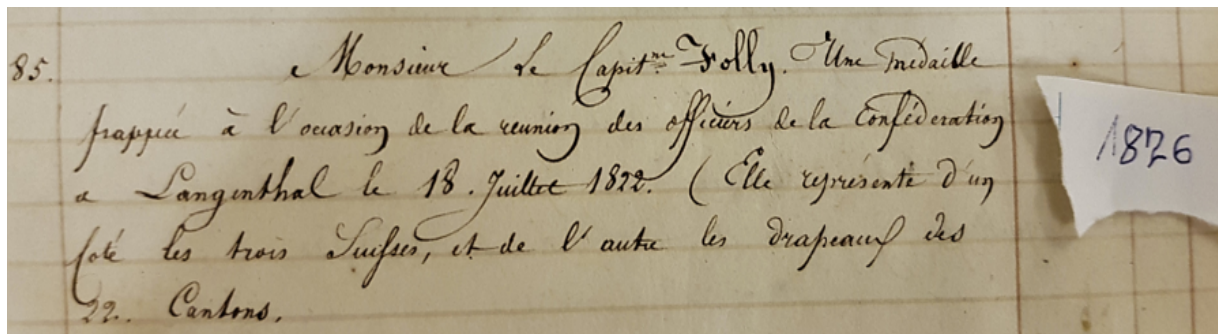 85. Monsieur Le Capit.ne Folly. Une medaille
frappée à l'occasion de la reunion des officiers de la Confédération
a Langenthal le 18. Juillet 1822. (Elle représente d'un
coté les trois Suisses, et de l'autre les drapeaux des
22. Cantons.
1826